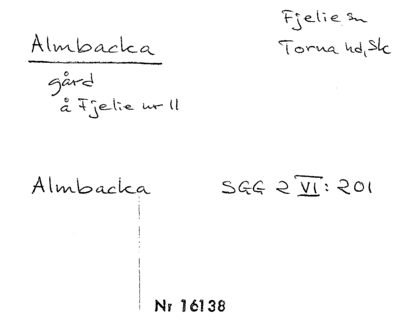 Fjelie sn
Almbacka
Torna hd, Sk
gård
å Fjelie nr 11
Almbacka
SGG 2 VI: 201
Nr 16138